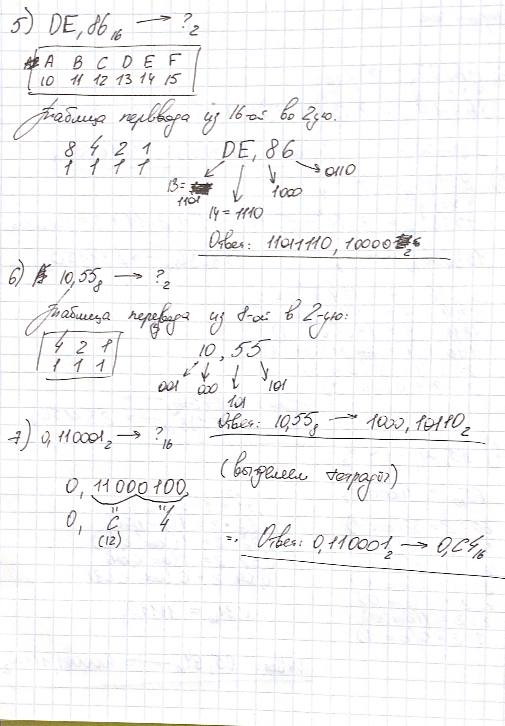 5) DE,86₁₆ → ?₂
A B C D E F
10 11 12 13 14 15
Таблица перевода из 16-ой во 2ую.
8 4 2 1
1 1 1 1
DE, 86
13=
1101
14 = 1110
1000
0110
Ответ: 11011110, 10000
6) 10,55₈ → ?₂
Таблица перевода из 8-ой в 2-ую:
4 2 1
1 1 1
10, 55
001 000 101 101
Ответ: 10,55₈ → 1000,10110₂
7) 0,110001₂ → ?₁₆
(выделяем тетрады)
0, 11000100
0, C 4
(12)
Ответ: 0,110001₂ → 0,C4₁₆